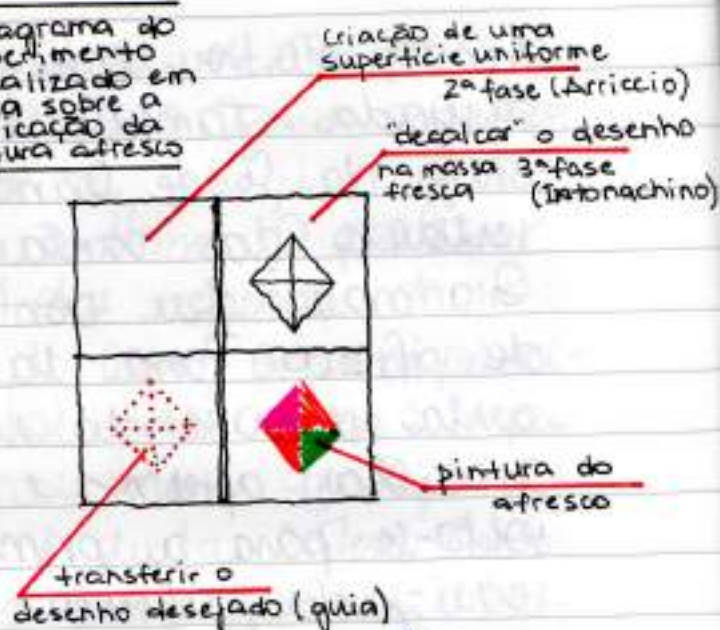 agrama do
perimento
alizado em
a sobre a
licação da
ura afresco
criação de uma
superfície uniforme
2ª fase (Arriccio)
"decalcar" o desenho
na massa 3ª fase
fresca (Intonachino)
pintura do
afresco
transferir o
desenho desejado (guia)